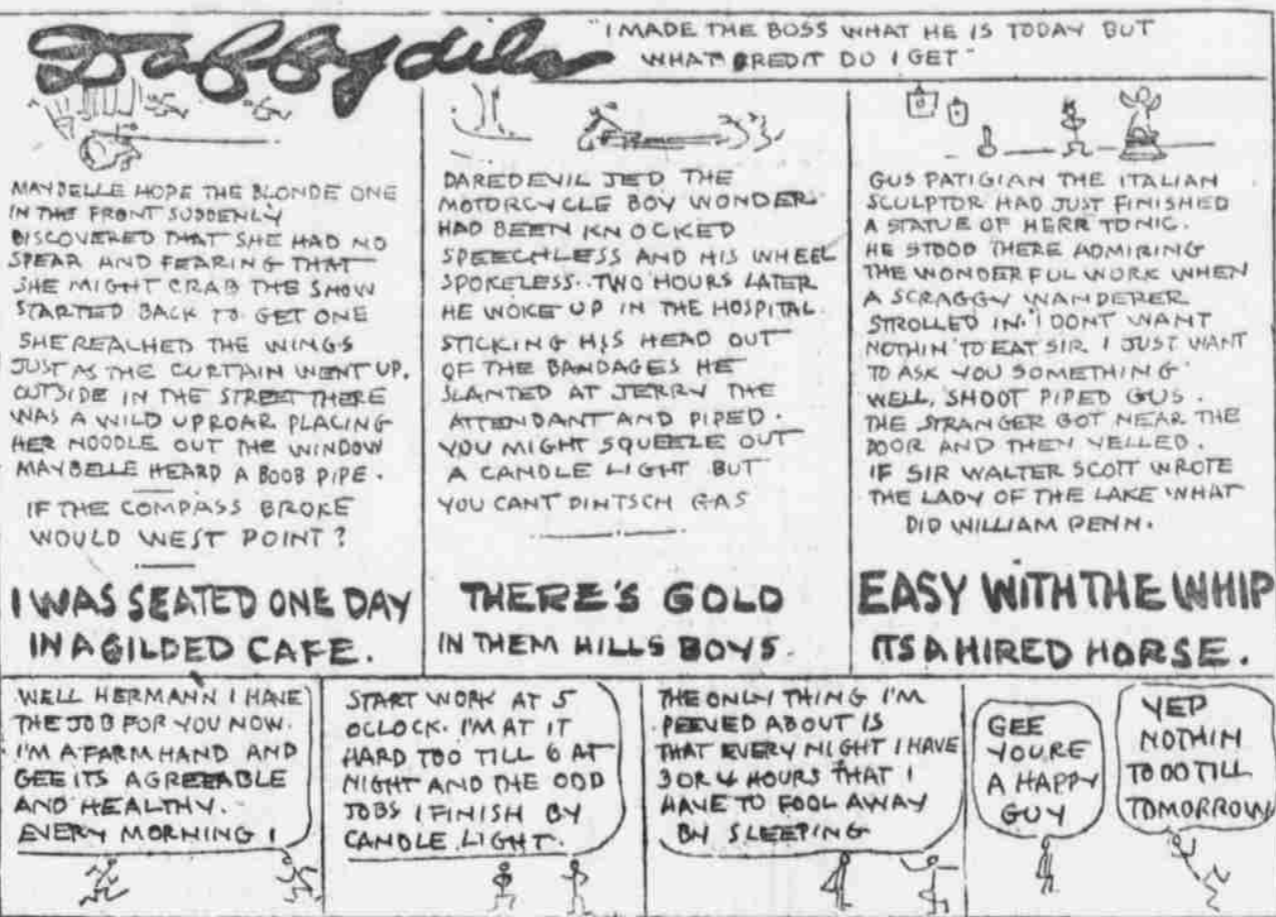 Daffydils
"I MADE THE BOSS WHAT HE IS TODAY BUT
WHAT CREDIT DO I GET"
MAYBELLE HOPE THE BLONDE ONE
IN THE FRONT SUDDENLY
DISCOVERED THAT SHE HAD NO
SPEAR AND FEARING THAT
SHE MIGHT CRAB THE SHOW
STARTED BACK TO GET ONE
SHE REACHED THE WINGS
JUST AS THE CURTAIN WENT UP.
OUTSIDE IN THE STREET THERE
WAS A WILD UPROAR PLACING
HER NOODLE OUT THE WINDOW
MAYBELLE HEARD A BOOB PIPE.
IF THE COMPASS BROKE
WOULD WEST POINT?
I WAS SEATED ONE DAY
IN A GILDED CAFE.
DAREDEVIL JED THE
MOTORCYCLE BOY WONDER
HAD BEEN KNOCKED
SPEECHLESS AND HIS WHEEL
SPOKELESS. TWO HOURS LATER
HE WOKE UP IN THE HOSPITAL.
STICKING HIS HEAD OUT
OF THE BANDAGES HE
SLANTED AT JERRY THE
ATTENDANT AND PIPED.
YOU MIGHT SQUEEZE OUT
A CANDLE LIGHT BUT
YOU CANT PINTSCH GAS
THERE'S GOLD
IN THEM HILLS BOYS.
GUS PATIGIAN THE ITALIAN
SCULPTOR HAD JUST FINISHED
A STATUE OF HERR TONIC.
HE STOOD THERE ADMIRING
THE WONDERFUL WORK WHEN
A SCRAGGY WANDERER
STROLLED IN. I DONT WANT
NOTHIN' TO EAT SIR I JUST WANT
TO ASK YOU SOMETHING
WELL, SHOOT PIPED GUS.
THE STRANGER GOT NEAR THE
DOOR AND THEN YELLED.
IF SIR WALTER SCOTT WROTE
THE LADY OF THE LAKE WHAT
DID WILLIAM PENN.
EASY WITH THE WHIP
ITS A HIRED HORSE.
WELL HERMANN I HAVE
THE JOB FOR YOU NOW.
I'M A FARM HAND AND
GEE ITS AGREEABLE
AND HEALTHY.
EVERY MORNING I
START WORK AT 5
OCLOCK. I'M AT IT
HARD TOO TILL 6 AT
NIGHT AND THE ODD
JOBS I FINISH BY
CANDLE LIGHT.
THE ONLY THING I'M
PEEVED ABOUT IS
THAT EVERY NIGHT I HAVE
3 OR 4 HOURS THAT I
HAVE TO FOOL AWAY
BY SLEEPING
GEE
YOURE
A HAPPY
GUY
YEP
NOTHIN
TO DO TILL
TOMORROW